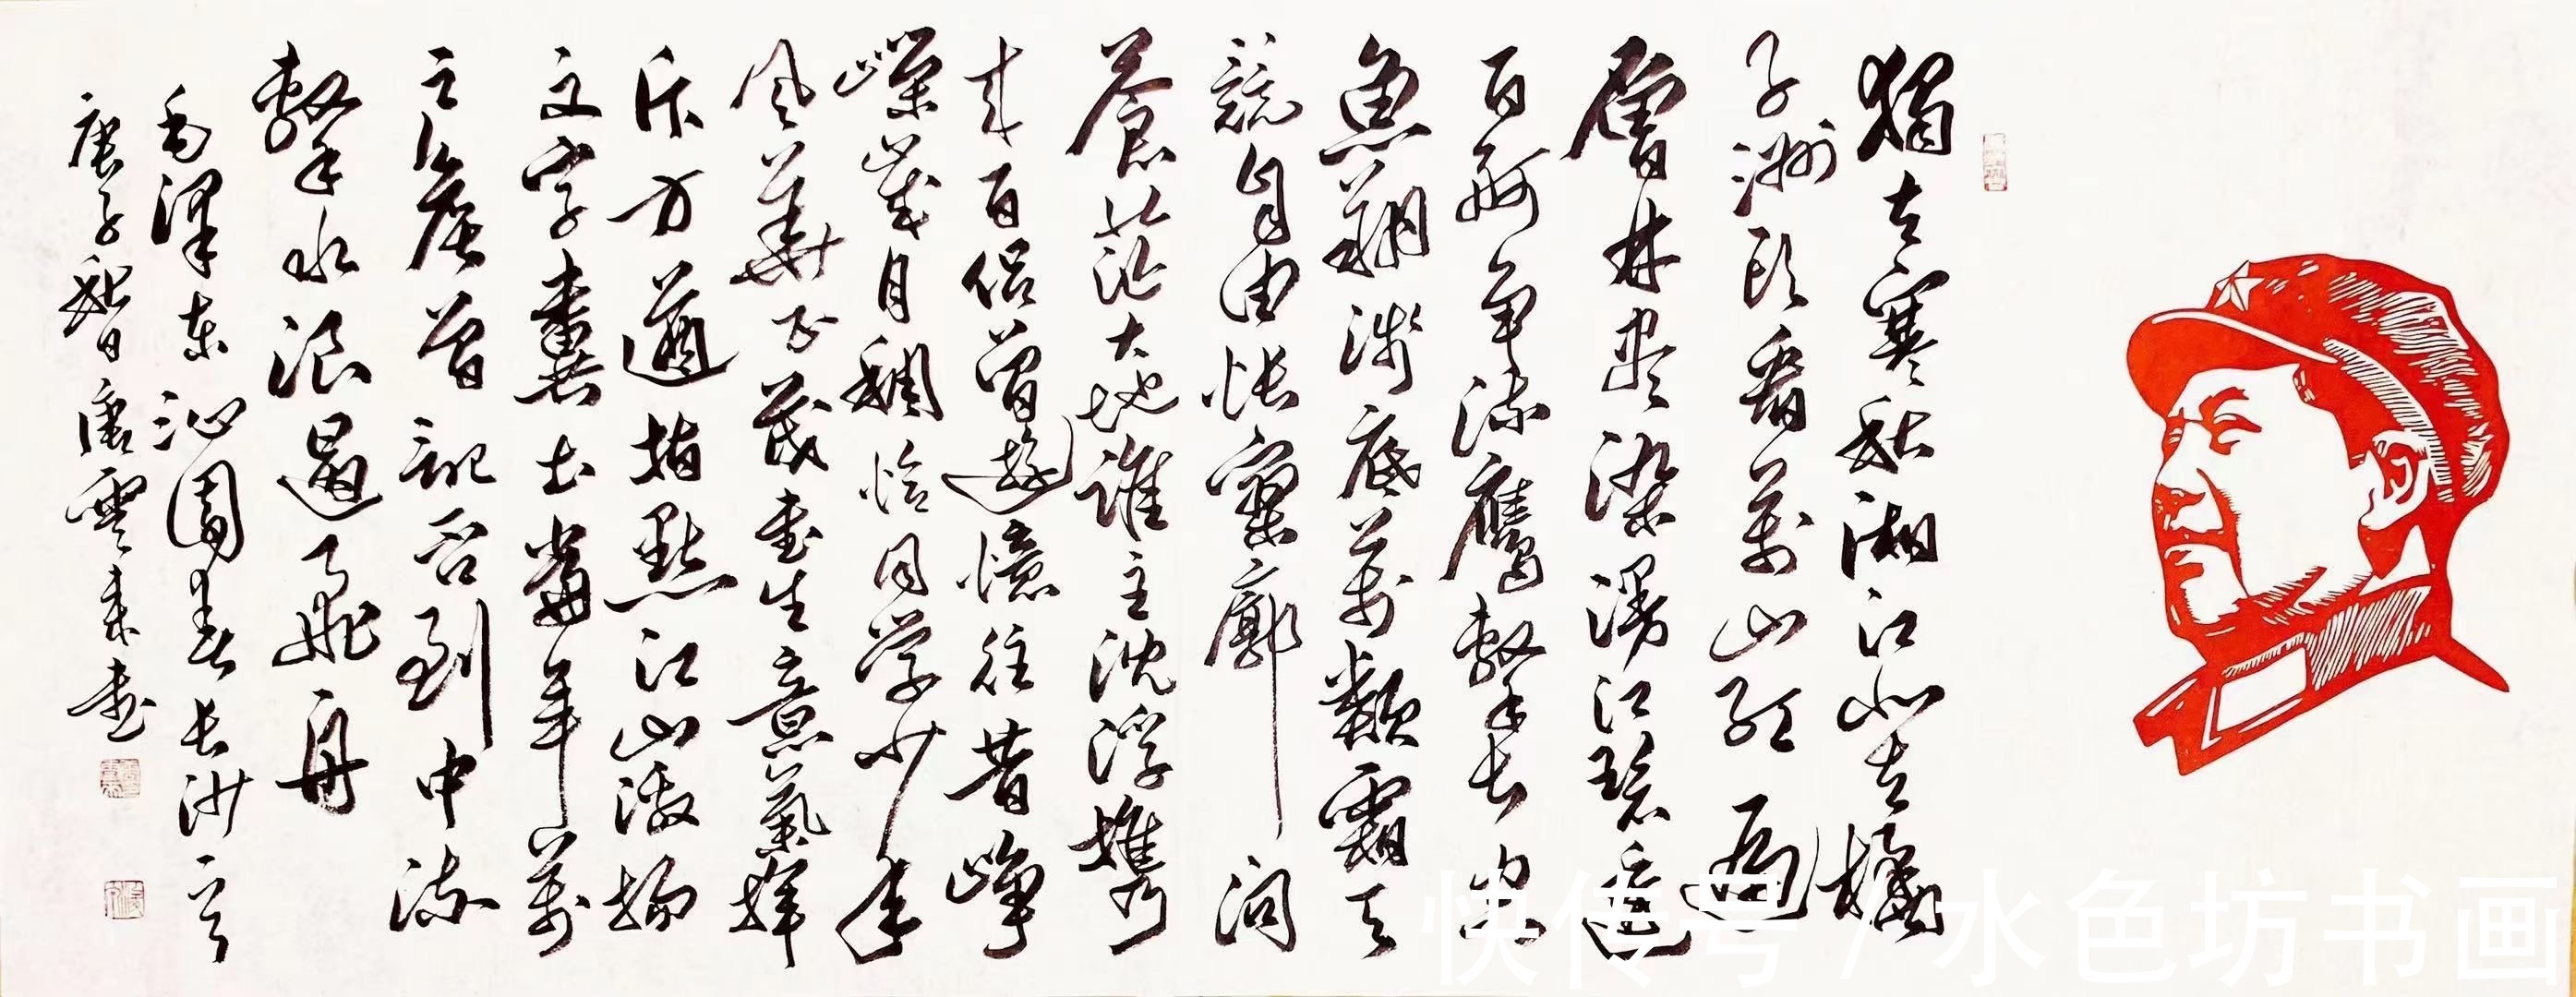 獨立寒秋湘江北去橘
子洲頭看萬山紅遍
層林盡染漫江碧透
百舸爭流鷹擊長空
魚翔淺底萬類霜天
競自由悵寥廓問
蒼茫大地誰主沈浮攜
來百侶曾遊憶往昔崢
嶸歲月稠恰同學少年
風華正茂書生意氣揮
斥方遒指點江山激揚
文字糞土當年萬
户侯曾記否到中流
擊水浪遏飛舟
毛澤東沁園春長沙一首
庚子秋日唐雲來書
快传号 / 水色坊书画